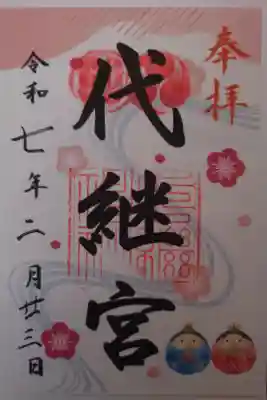 奉拝
代継宮
令和七年二月廿三日